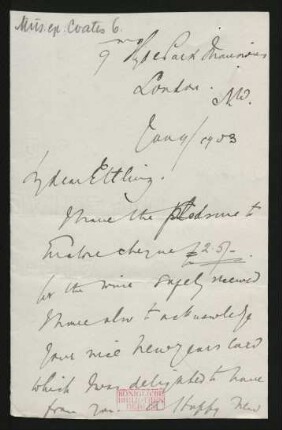 Mus. ep. Coates 6
9 Hyde Park Mansions
London. NW.
Jan 9/1903
My dear Ettling!
I have the pleasure to
enclose cheque £ 2. 5/-
for the wine safely received
I have also to acknowledge
your nice New Years Card
which I was delighted to have
from you. A Happy New